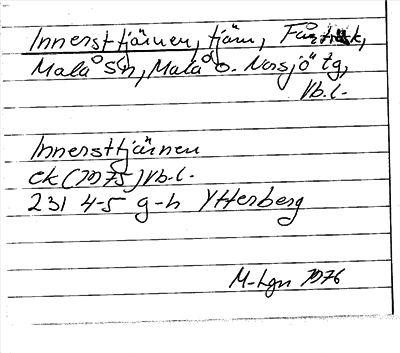 Innersttjärnen, tjärn, Fårträsk,
Malå Sn, Malå o. Norsjö tg,
Vb.l.
Innersttjärnen
ek (1975) Vb.l.
231 4-5 g-h Ytterberg
M-Lgn 1976